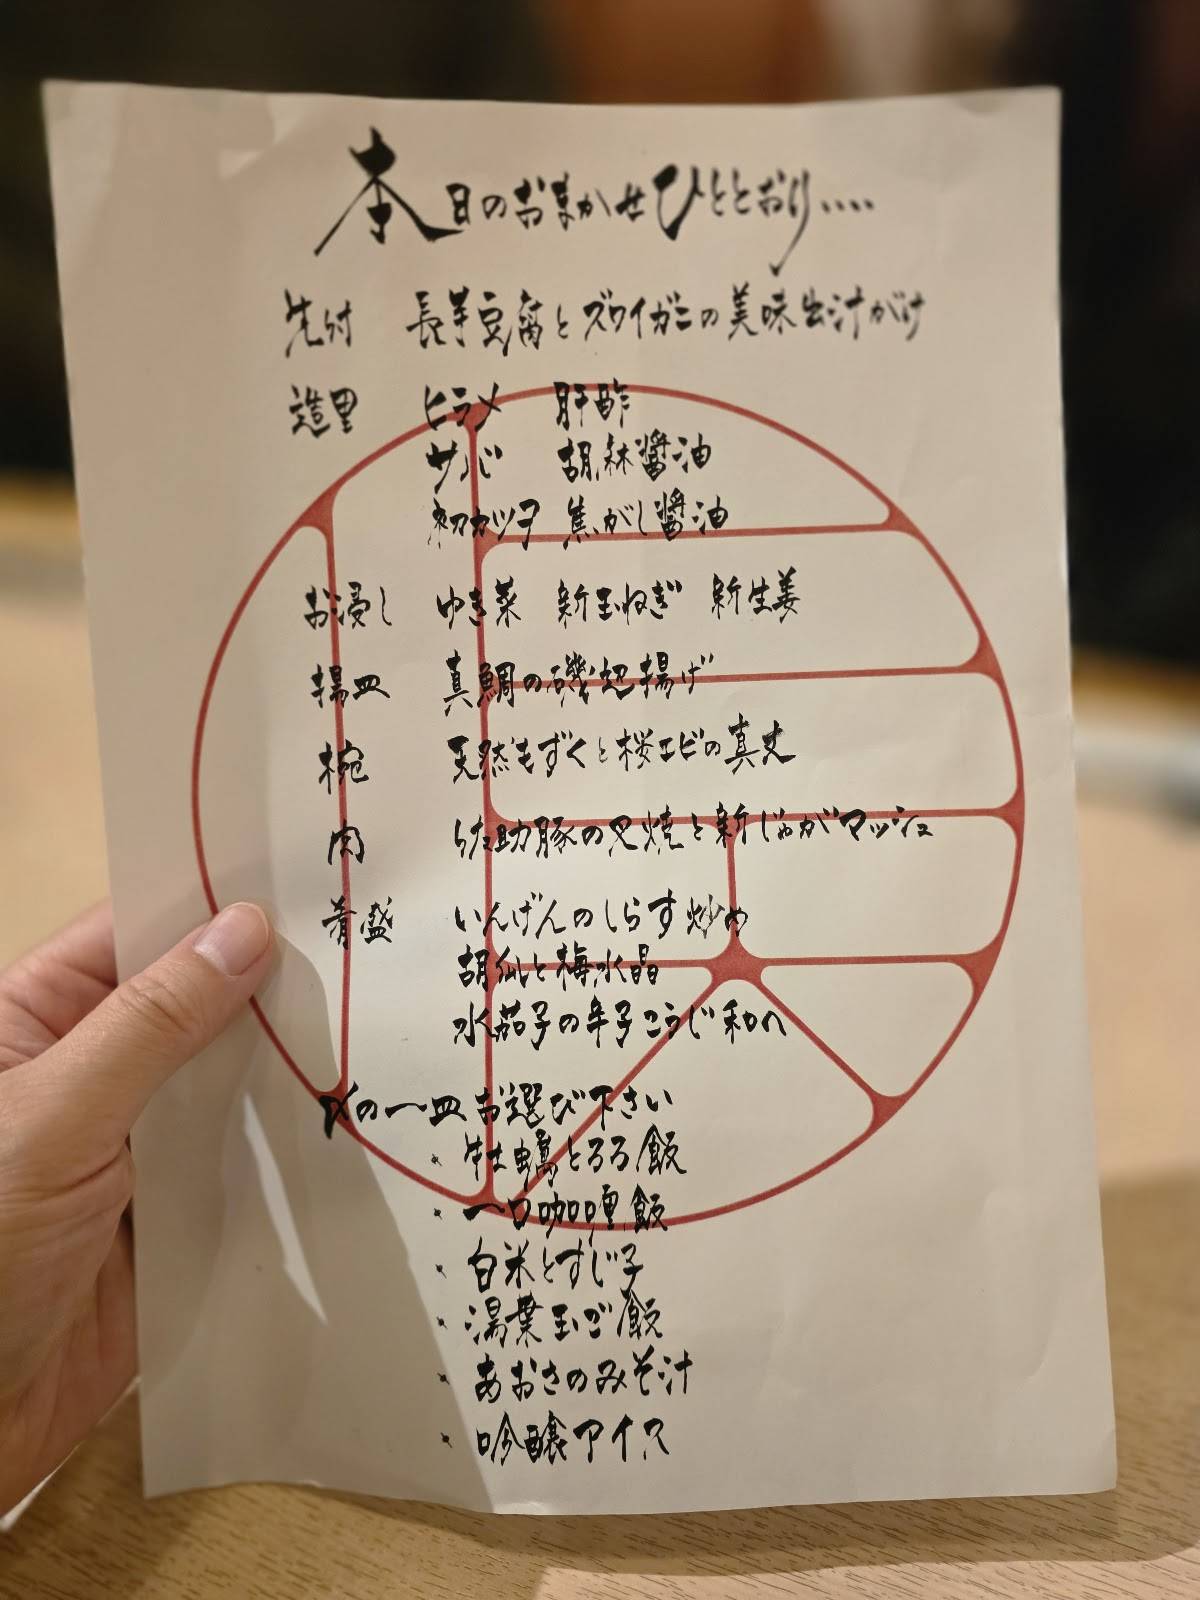 本日のおまかせひととおり....
先付 長芋豆腐とズワイガニの美味出汁がけ
造里 ヒラメ 肝酢
サバ 胡麻醤油
初カツヲ 焦がし醤油
お浸し ゆき菜 新玉ねぎ 新生姜
揚皿 真鯛の磯辺揚げ
椀 天然もずくと桜エビの真丈
肉 佐助豚の叉焼と新じゃがマッシュ
肴盛 いんげんのしらす炒め
胡仙と梅水晶
水茄子の辛子こうじ和へ
〆の一皿お選び下さい
・牡蠣とろろ飯
・一口咖喱飯
・白米とすじ子
・湯葉玉ご飯
・あおさのみそ汁
・吟醸アイス